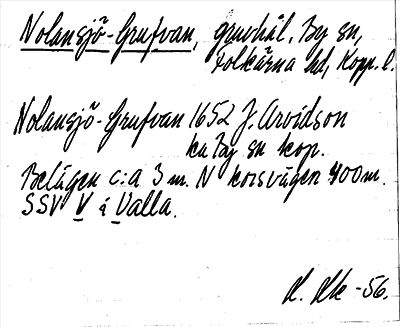 Nolansjö-Grufvan, gruvhål. By sn,
Folkärna hd, Kopp. l.
Nolansjö-Grufvan 1652 J. Arvidson
ka By sn kop.
Belägen c:a 3 m. N korsvägen 400 m.
SSV V i Valla.
-56.